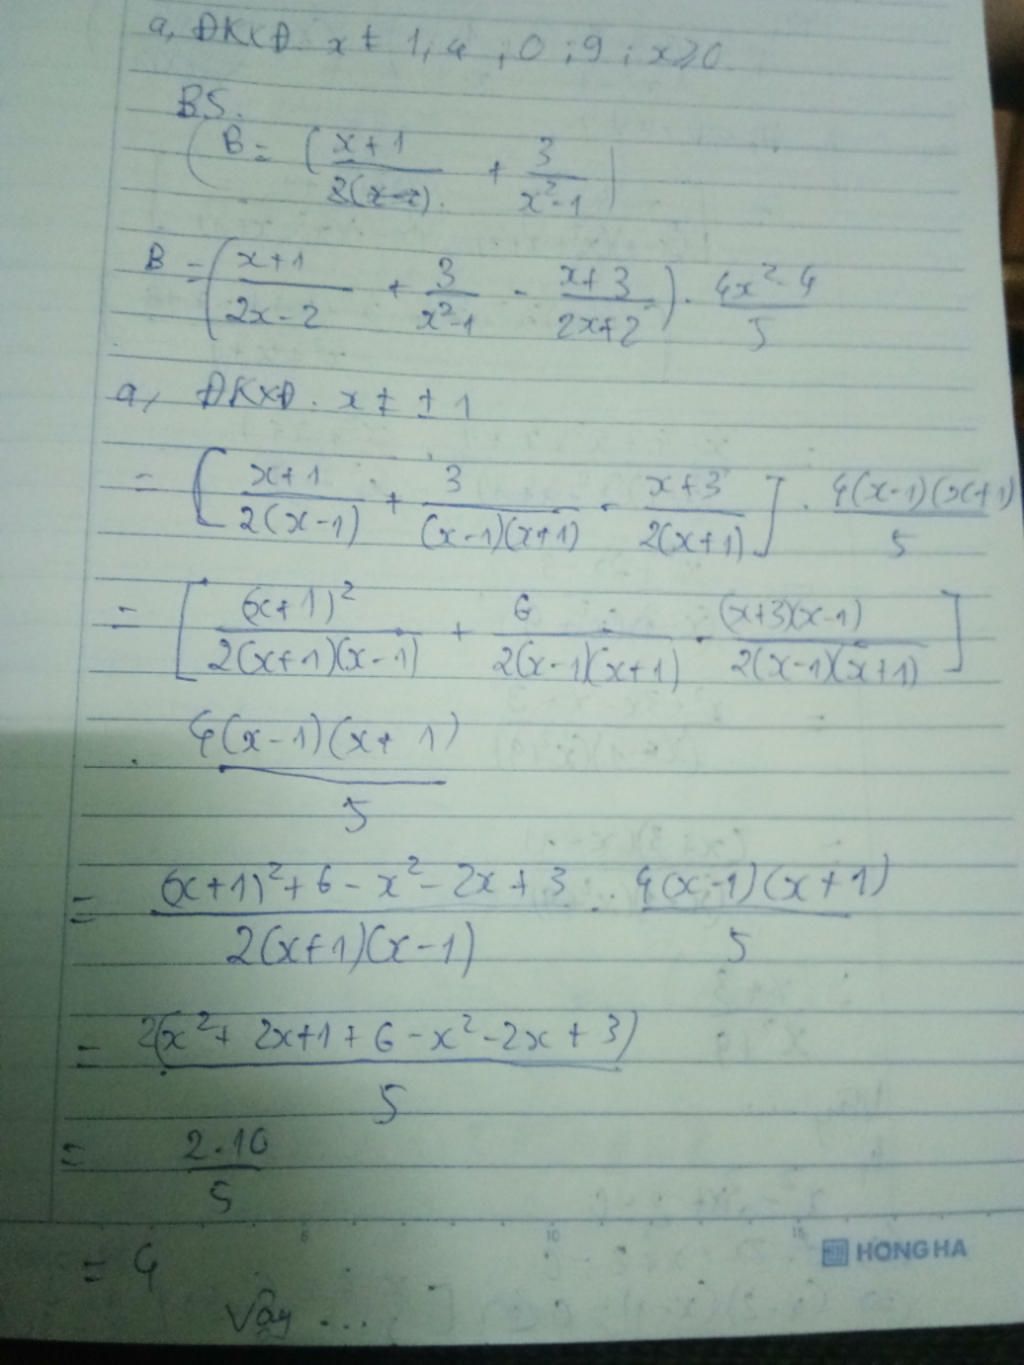 a, ĐKXĐ. x ≠ 1, 4 ; 0 ; 9 ; x ≥ 0
BS.
( B = ( (x+1)/(2(x-2)) + 3/(x²-1) )
B = ( (x+1)/(2x-2) + 3/(x²-1) - (x+3)/(2x+2) ) . (4x²-4)/5
a, ĐKXĐ. x ≠ ± 1
= [ (x+1)/(2(x-1)) + 3/((x-1)(x+1)) - (x+3)/(2(x+1)) ] . 4(x-1)(x+1)/5
= [ (x+1)²/(2(x+1)(x-1)) + 6/(2(x-1)(x+1)) - (x+3)(x-1)/(2(x-1)(x+1)) ]
. 4(x-1)(x+1)/5
= ((x+1)²+6-x²-2x+3)/(2(x+1)(x-1)) . 4(x-1)(x+1)/5
= 2(x²+2x+1+6-x²-2x+3)/5
= 2.10/5
6 10 15
HONG HA
= 4
Vậy ...